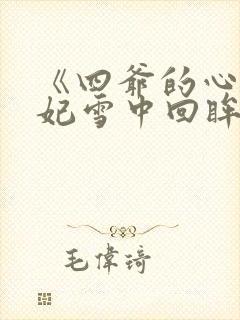 《四爷的心
妃雪中回眸
毛偉琦